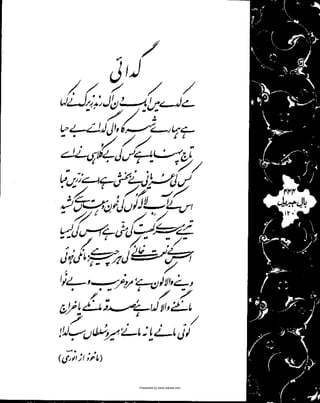 گدائی
مے کدے میں ایک دن اک رندِ زیرک نے کہا
ہے ہمارے شہر کا والی گدائے بے حیا
تاج پہنایا ہے کس کی بے کلاہی نے اسے
کس کی عریانی نے بخشی ہے اسے زریں قبا
اس کے آبِ لالہ گوں کی خونِ دہقاں سے کشید
تیرے میرے کھیت کی مٹی ہے اس کی کیمیا
اس کے نعمت خانے کی ہر چیز ہے مانگی ہوئی
دینے والا کون ہے؟ مردِ غریب و بے نوا
مانگنے والا گدا ہے، صدقہ مانگے یا خراج
کوئی مانے یا نہ مانے، میر و سلطاں سب گدا!
(ماخوذ از انوری)
بالِ جبریل
Presented by www.iqbalat.com